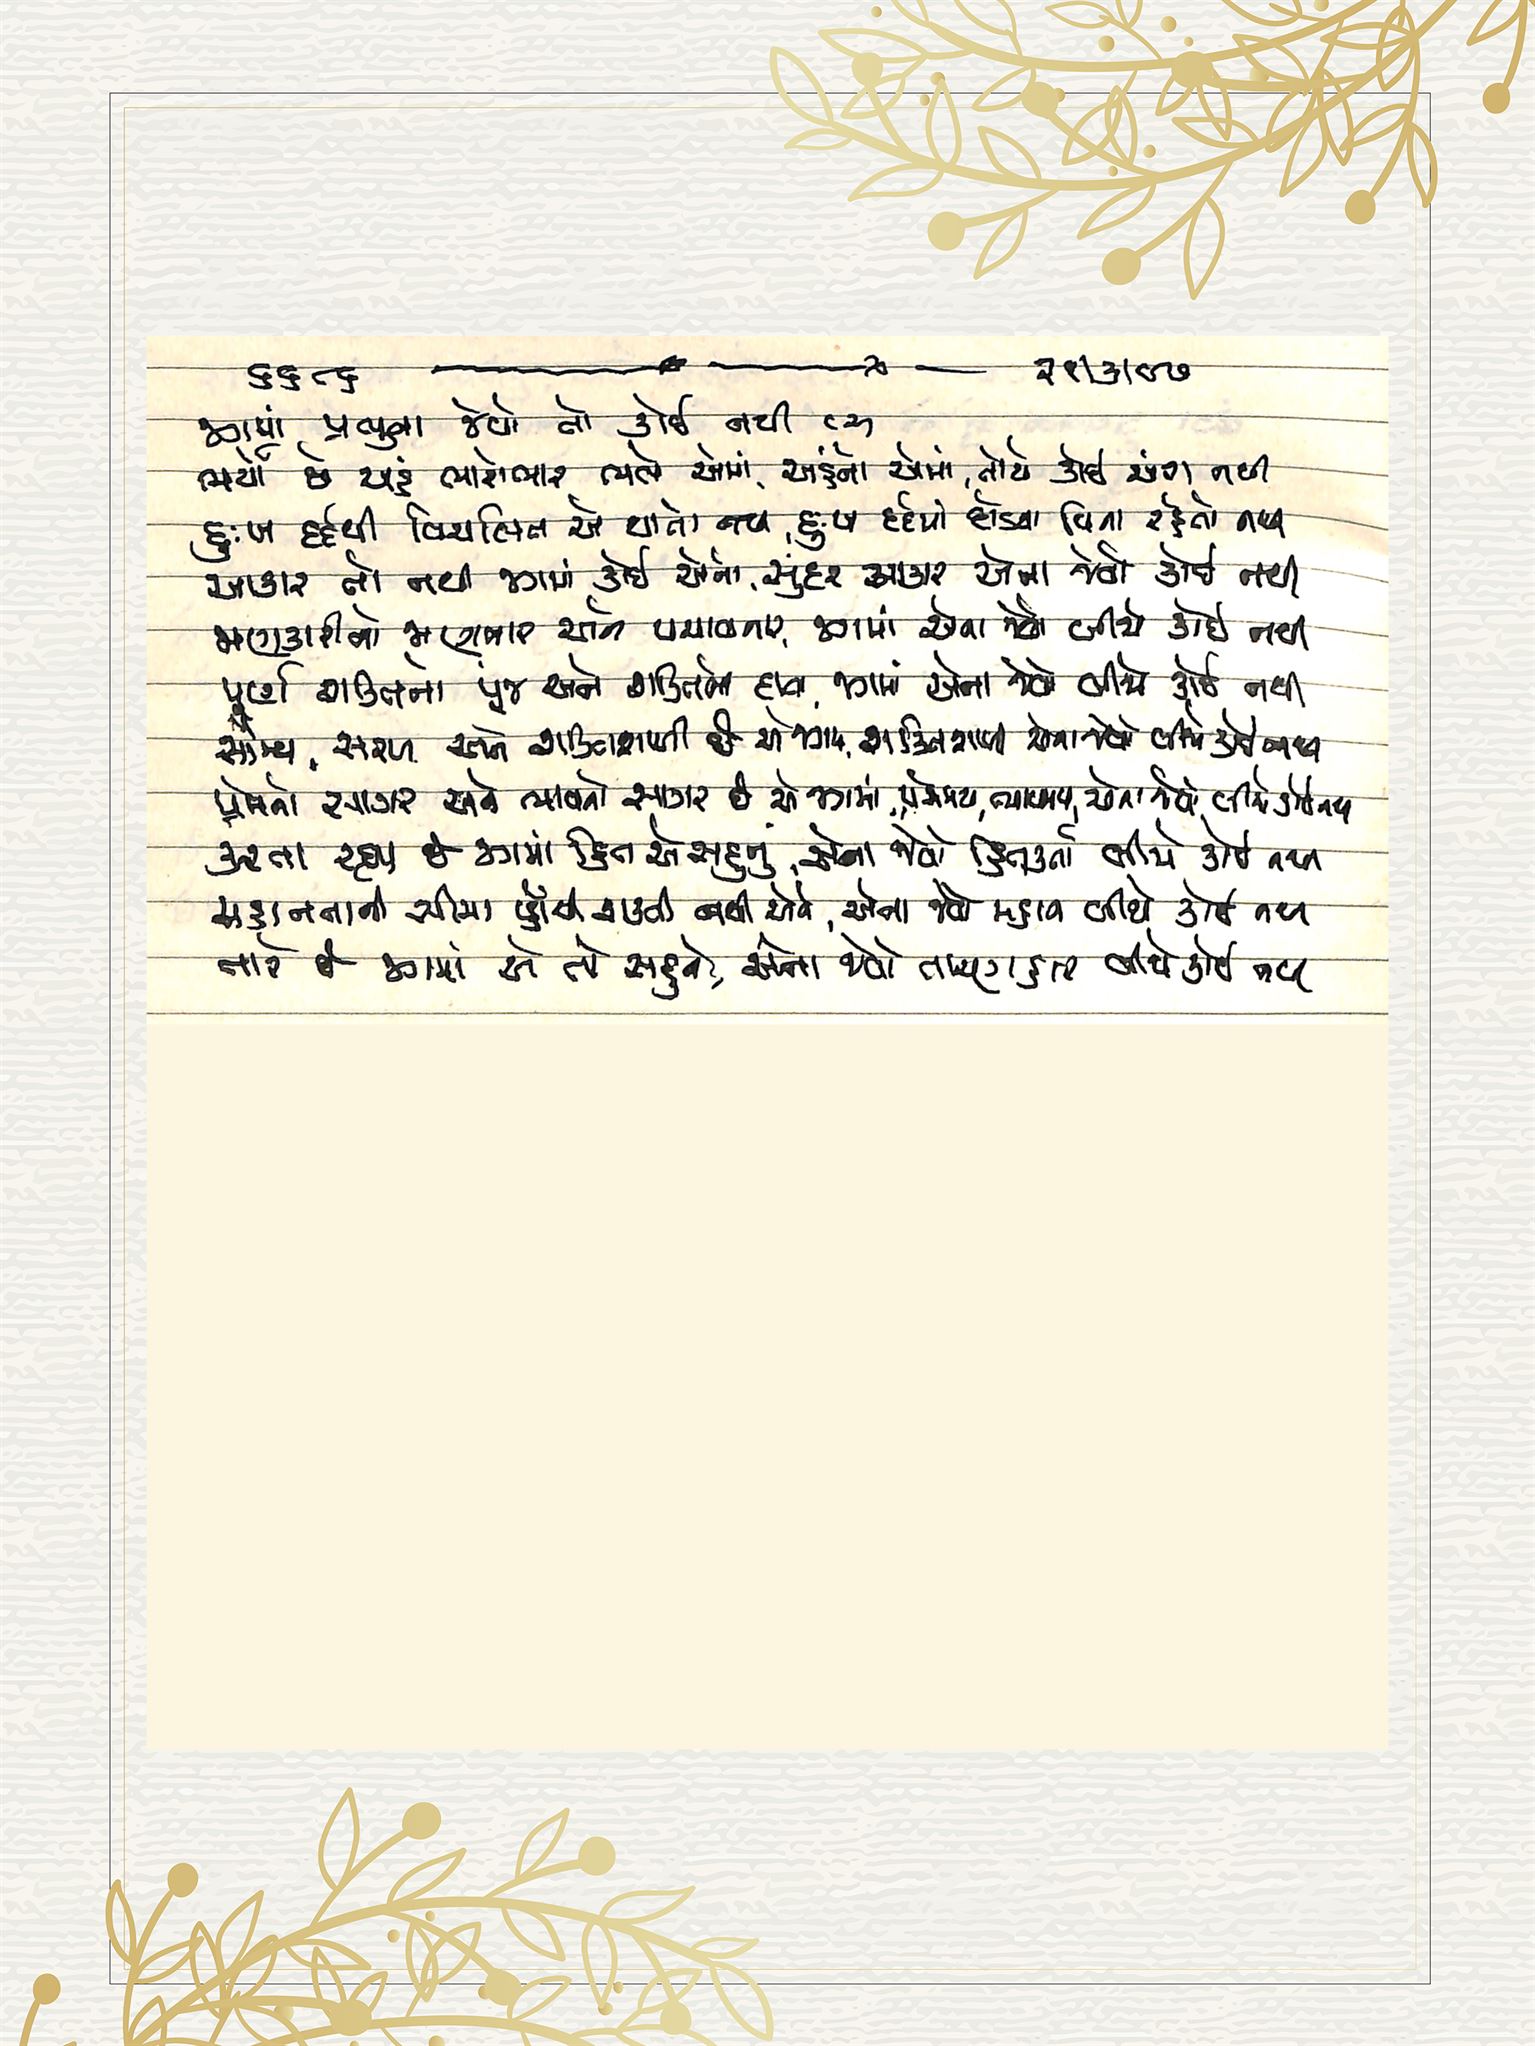 ૬૬૮૬ ૨૧/૩/૯૭
જગમાં પ્રભુના જેવો તો કોઈ નથી
ભર્યો છે અહં ભારોભાર ભલે એમાં, અહંનો એમાં, તોયે કોઈ અંશ નથી
દુઃખ દર્દથી વિચલિત એ થાતો નથી, દુઃખ દર્દમાં દોડયા વિના રહેતો નથી
આકાર તો નથી જગમાં કોઈ એનો, સુંદર આકાર એના જેવો કોઈ નથી
જાણકારીનો જાણનાર એને પચાવનાર, જગમાં એના જેવો બીજો કોઈ નથી
પૂર્ણ શક્તિનો પૂંજ અને શક્તિનો દાતા, જગમાં એના જેવો બીજો કોઈ નથી
સૌમ્ય, સરળ અને શક્તિશાળી છે એ જગમાં, શક્તિશાળી એના જેવો બીજો કોઈ નથી
પ્રેમનો સાગર અને ભાવનો સાગર છે એ જગમાં, પ્રેમમય, ભાવમય, એના જેવો બીજો કોઈ નથી
કરતા રહ્યા છે જગમાં હિત એ સહુનું, એના જેવો હિતકર્તા બીજો કોઈ નથી
મહાનતાની સીમા પ્હોંચી શકતી નથી એને, એના જેવો મહાન બીજો કોઈ નથી
તારે છે જગમાં એ તો સહુને, એના જેવો તારણહાર બીજો કોઈ નથી